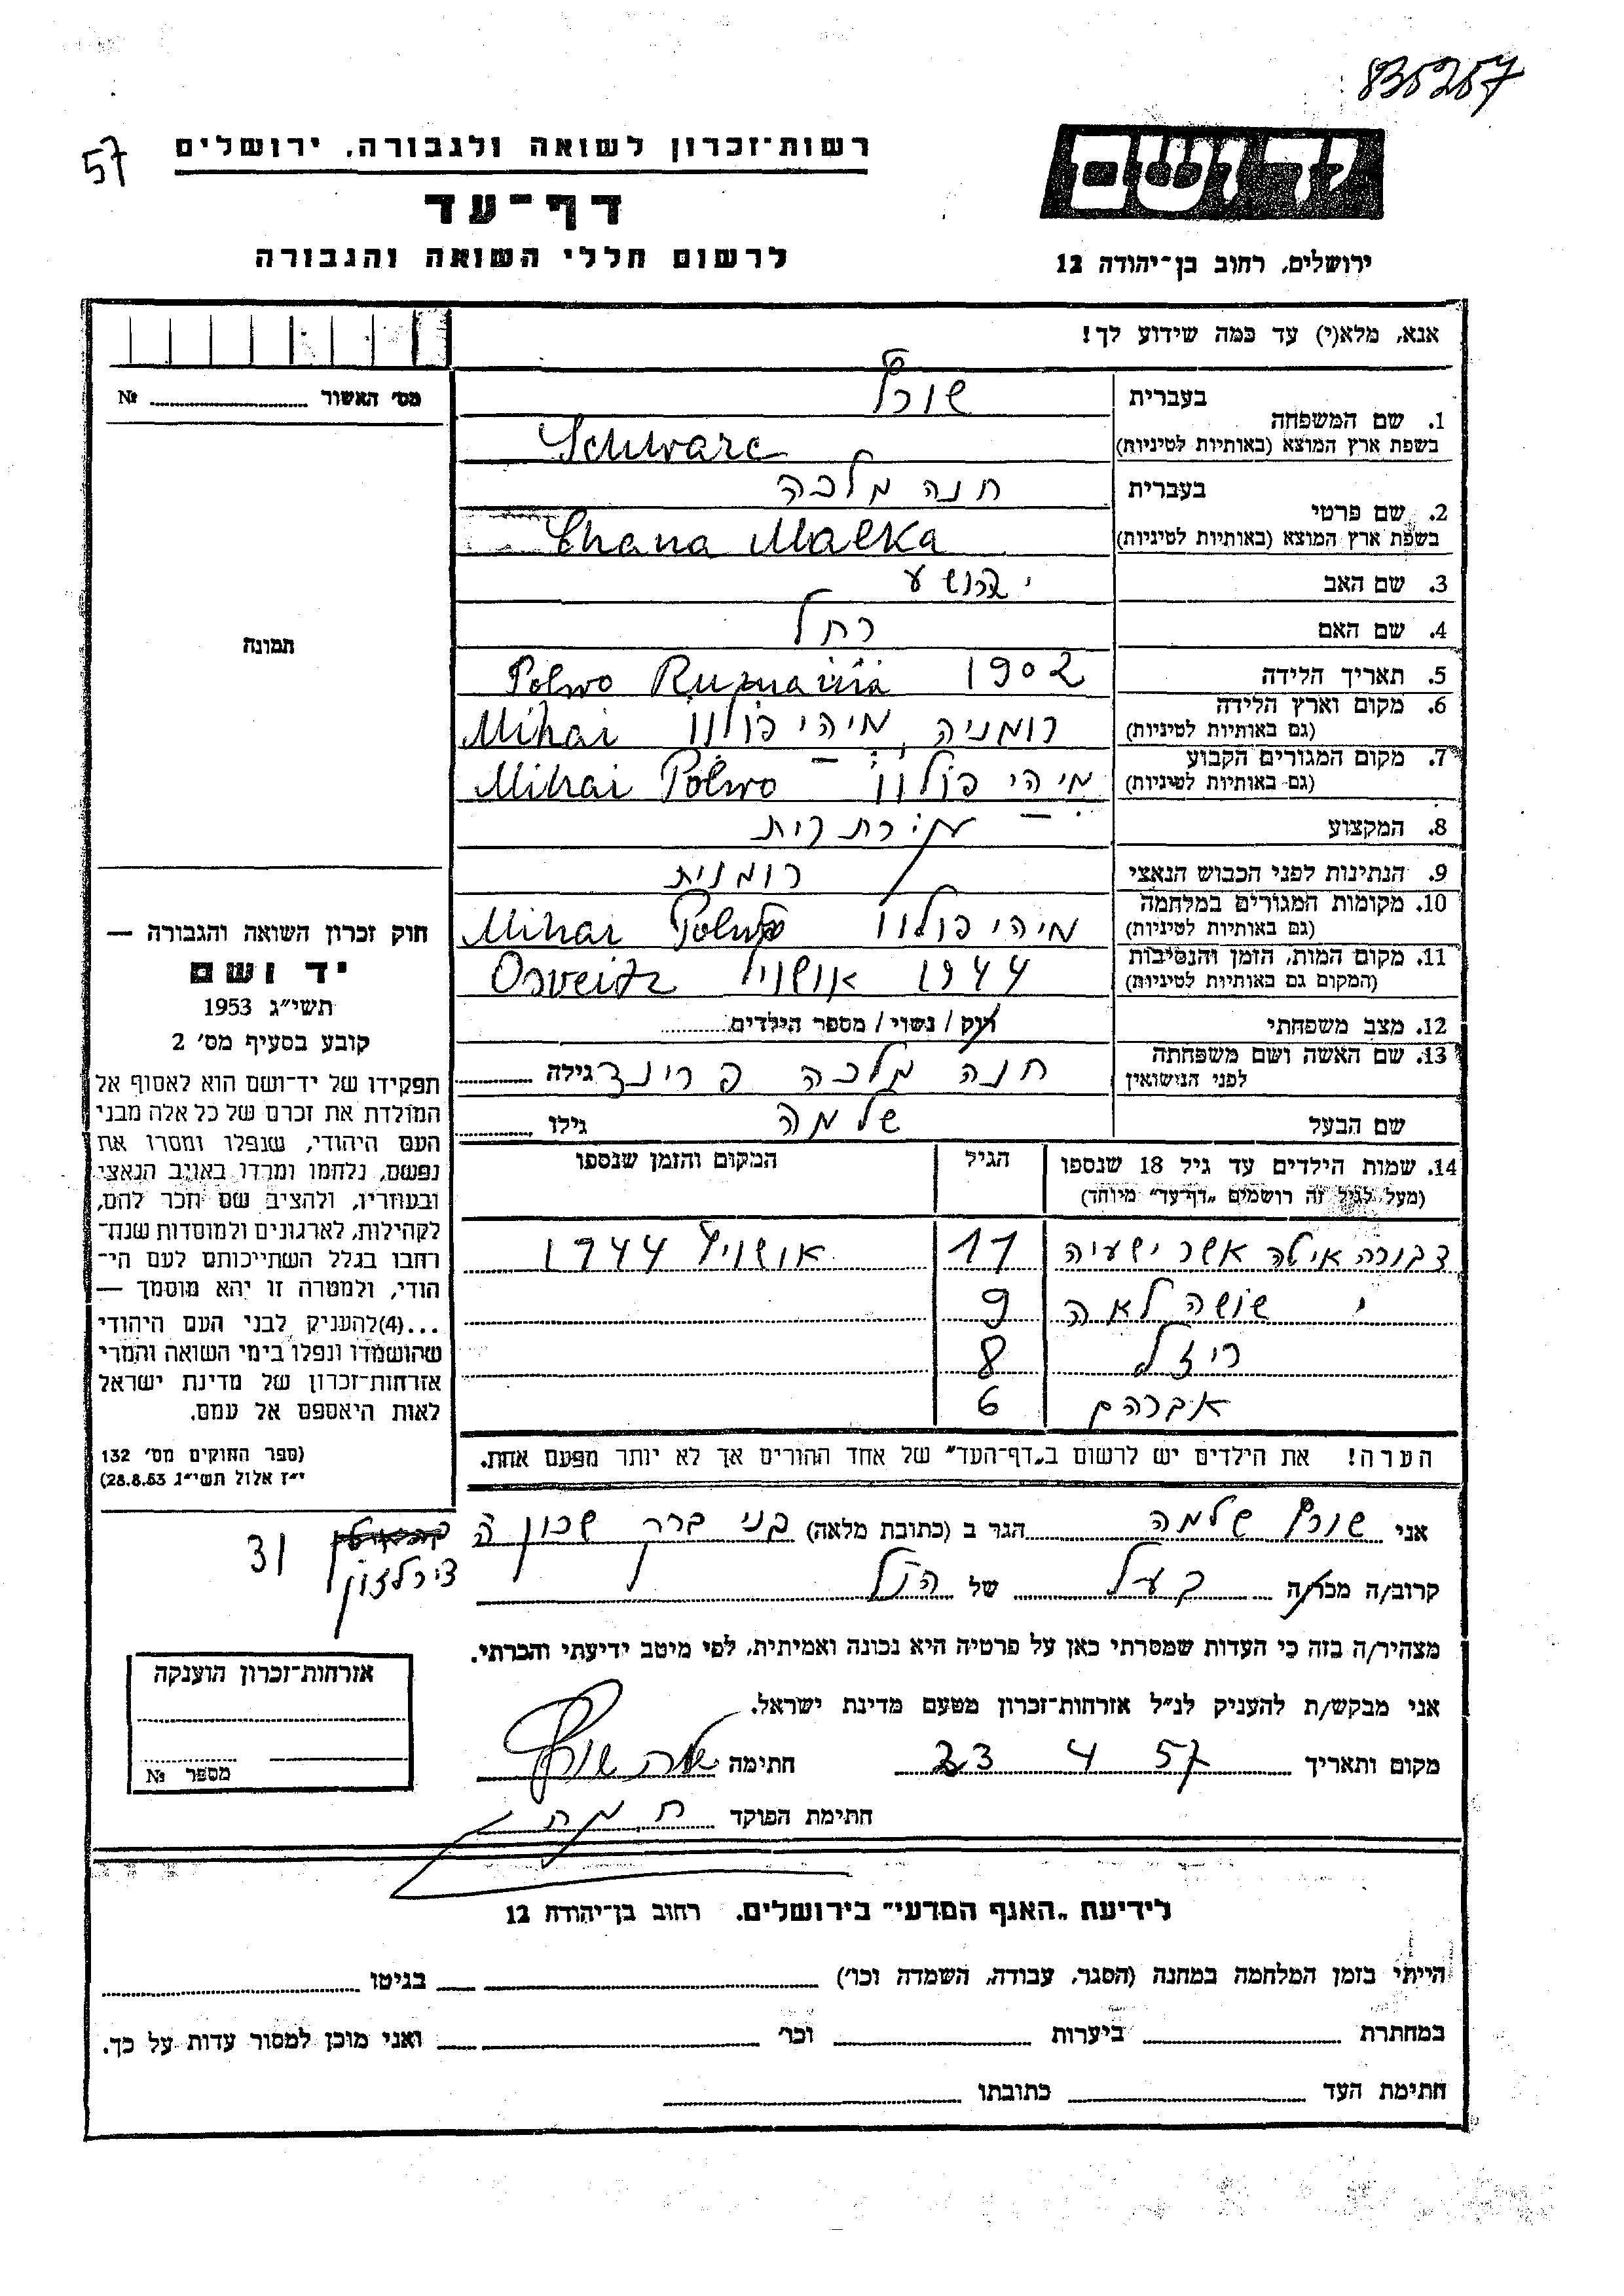 835257
57
רשות־זכרון לשואה ולגבורה, ירושלים
דף־עד
לרשום חללי השואה והגבורה
יד ושם
ירושלים, רחוב בן־יהודה 12
אנא, מלא(י) עד כמה שידוע לך!
מס׳ האשור №
1. שם המשפחה בעברית שורץ
בשפת ארץ המוצא (באותיות לטיניות) Schwarc
2. שם פרטי בעברית חנה מלכה
בשפת ארץ המוצא (באותיות לטיניות) Chana Malka
3. שם האב יהושע
4. שם האם רחל
5. תאריך הלידה 1902 Polwo
6. מקום וארץ הלידה
(גם באותיות לטיניות) רומניה, מיהי פולוו Mihai
7. מקום המגורים הקבוע
(גם באותיות לטיניות) מיהי פולוו Mihai Polwo
8. המקצוע
9. הנתינות לפני הכבוש הנאצי רומנית
10. מקומות המגורים במלחמה
(גם באותיות לטיניות) מיהי פולוו Mihai
11. מקום המות, הזמן והנסיבות
(המקום גם באותיות לטיניות) 1944 אושויץ Osveitz
12. מצב משפחתי רוק / נשוי / מספר הילדים
13. שם האשה ושם משפחתה
לפני הנישואין חנה מלכה פרינד גילה
שם הבעל שלמה גילו
14. שמות הילדים עד גיל 18 שנספו הגיל המקום והזמן שנספו
(מעל לגיל זה רושמים „דף־עד״ מיוחד)
דבורה איטה אשר ישעיה 11 אושויץ 1944
שושה לאה 9
ריזל 8
אברהם 6
הערה! את הילדים יש לרשום ב„דף־העד״ של אחד ההורים אך לא יותר מפעם אחת.
תמונה
חוק זכרון השואה והגבורה —
יד ושם
תשי״ג 1953
קובע בסעיף מס׳ 2
תפקידו של יד־ושם הוא לאסוף אל
המולדת את זכרם של כל אלה מבני
העם היהודי, שנפלו ומסרו את
נפשם, נלחמו ומרדו באויב הנאצי
ובעוזריו, ולהציב שם וזכר להם,
לקהילות, לארגונים ולמוסדות שנח־
רחבו בגלל השתייכותם לעם הי־
הודי, ולמטרה זו יהא מוסמך —
...(4) להעניק לבני העם היהודי
שהושמדו ונפלו בימי השואה והמרי
אזרחות־זכרון של מדינת ישראל
לאות היאספם אל עמם.
(ספר החוקים מס׳ 132
י״ז אלול תשי״ג 28.8.53)
אני שורץ שלמה הגר ב (כתובת מלאה) בני ברק שכון ה
31
קרוב/ה מכר/ה בעל של הנ״ל
מצהיר/ה בזה כי העדות שמסרתי כאן על פרטיה היא נכונה ואמיתית, לפי מיטב ידיעתי והכרתי.
אני מבקש/ת להעניק לנ״ל אזרחות־זכרון מטעם מדינת ישראל.
מקום ותאריך 23 4 57 חתימה
חתימת הפוקד
אזרחות־זכרון הוענקה
מספר №
לידיעת „האגף המדעי״ בירושלים, רחוב בן־יהודה 12
הייתי בזמן המלחמה במחנה (הסגר, עבודה, השמדה וכו׳) בגיטו
במחתרת ביערות וכו׳ ואני מוכן למסור עדות על כך.
חתימת העד כתובתו